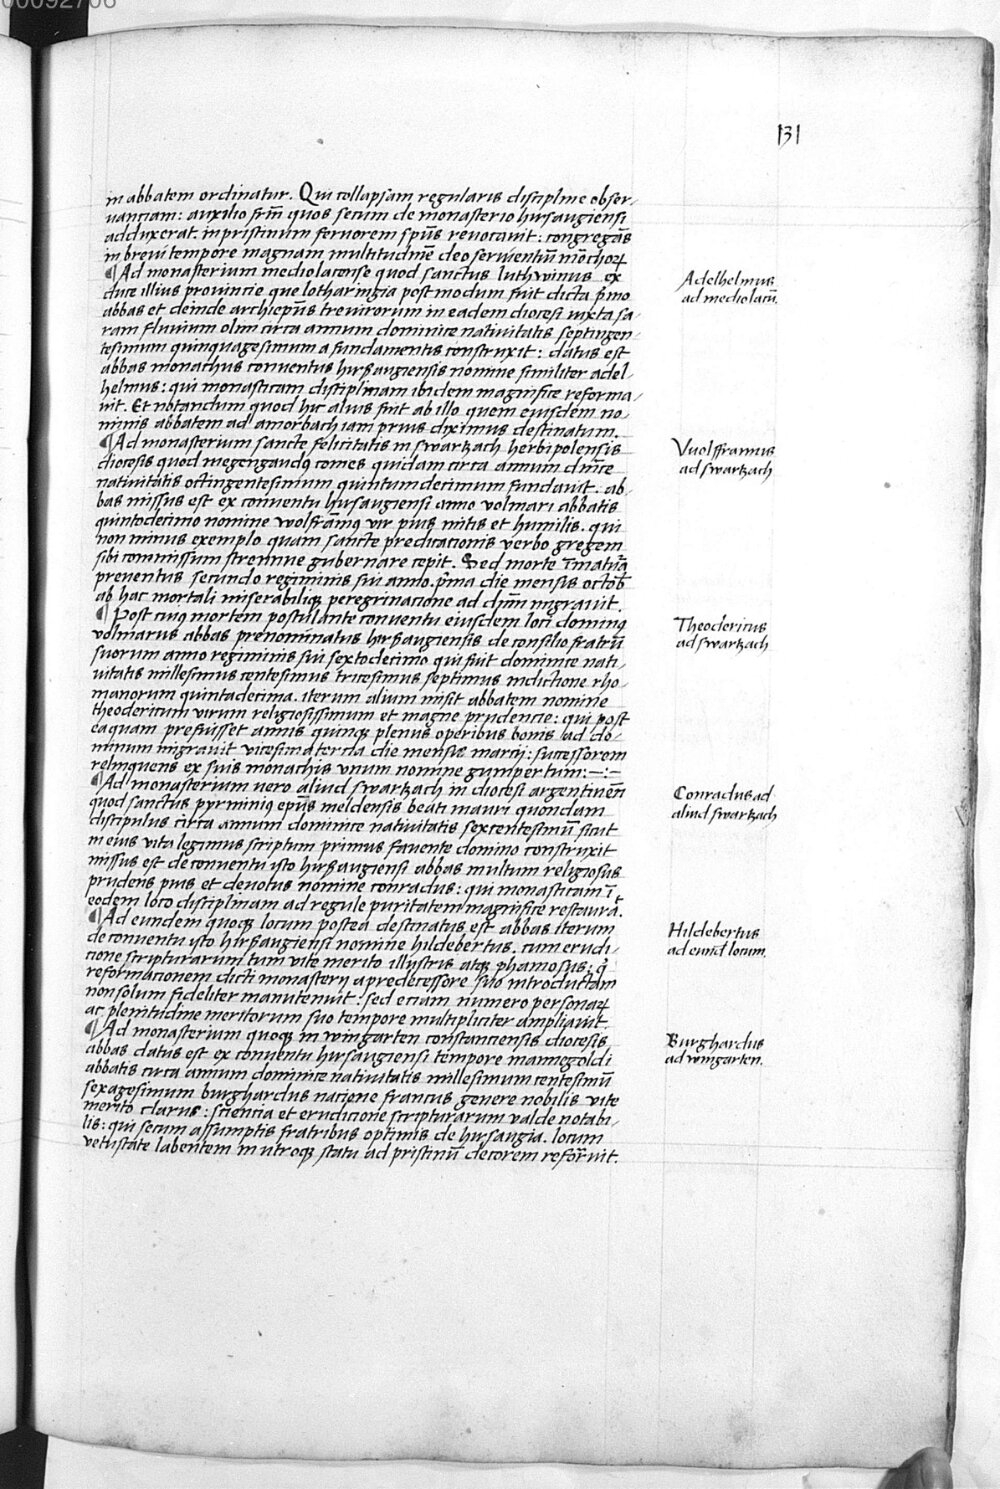 00092706
131
in abbatem ordinatur. Qui collapsam regularis discipline obser-
uantiam: auxilio frm̄ quos secum de monasterio hirsaugiensi
adduxerat. in pristinum feruorem sp̄us reuocauit: congregās
in breui tempore magnam multitudinē deo seruientiū mōchoꝝ
¶ Ad monasterium mediolacense quod sanctus luthwinus ex
duce illius prouincie que lotharingia postmodum fuit dicta p̄mo
abbas et deinde archiep̄us treuirorum in eadem diocesi iuxta sa-
ram fluuium olim circa annum dominice natiuitatis septingen-
tesimum quinquagesimum a fundamentis construxit: datus est
abbas monachus conuentus hirsaugiensis nomine similiter adel-
helmus: qui monasticam disciplinam ibidem magnifice reforma-
uit. Et notandum quod hic alius fuit ab illo quem eiusdem no-
minis abbatem ad amorbach iam prius diximus destinatum.
Adelhelmus
ad mediolacū.
¶ Ad monasterium sancte felicitatis in swartzach herbipolensis
diocesis quod megengaudꝰ comes quidam circa annum dn̄ice
natiuitatis octingentesimum quintumdecimum fundauit. ab-
bas missus est ex conuentu hirsaugiensi anno volmari abbatis
quintodecimo nomine wolframꝰ vir pius mitis et humilis. qui
non minus exemplo quam sancte predicationis verbo gregem
sibi commissum strennue gubernare cepit. Sed morte īmatura
preuentus secundo regiminis sui anno. p̄ma die mensis octob̄
ab hac mortali miserabiliqꝫ peregrinacione ad dn̄m migrauit.
Vuolfframus
ad swartzach
¶ Post cuiꝰ mortem postulante conuentu eiusdem loci dominꝰ
volmarus abbas prenominatus hirsaugiensis de consilio fratrū
suorum anno regiminis sui sextodecimo qui fuit dominice nati-
uitatis millesimus centesimus tricesimus septimus indictione rho-
manorum quintadecima. iterum alium misit abbatem nomine
theodericum virum religiosissimum et magne prudencie: qui post
ea quam prefuisset annis quinqꝫ plenus operibus bonis ad do-
minum migrauit vicesimatercia die mensis marcij: successorem
relinquens ex suis monachis vnum nomine gumpertum:—:—
Theodericus
ad swartzach
¶ Ad monasterium vero aliud swartzach in diocesi argentinen̄
quod sanctus pyrminiꝰ ep̄us meldensis beati mauri quondam
discipulus circa annum dominice natiuitatis sexcentesimū sicut
in eius vita legimus scriptum primus fauente domino construxit
missus est de conuentu isto hirsaugiensi abbas multum religiosus
prudens pius et deuotus nomine conradus: qui monasticam ī
eodem loco disciplinam ad regule puritatem magnifice restaurat.
Conradus ad
aliud swartzach
¶ Ad eundem quoqꝫ locum postea destinatus est abbas iterum
de conuentu isto hirsaugiensi nomine hildebertus. cum erudi-
cione scripturarum tum vite merito illustris atqꝫ phamosus: qͥ
reformationem dicti monasterij a predecessore suo introductam
non solum fideliter manutenuit: sed eciam numero personaꝝ
ac plenitudine meritorum suo tempore multipliciter ampliauit.
Hildebertus
ad eund̄ locum.
¶ Ad monasterium quoqꝫ in wingarten constanciensis diocesis
abbas datus est ex conuentu hirsaugiensi tempore mannegoldi
abbatis circa annum dominice natiuitatis millesimum centesimū
sexagesimum burghardus nacione francus genere nobilis vite
merito clarus: sciencia et erudicione scripturarum valde notabi-
lis: qui secum assumptis fratribus optimis de hirsaugia. locum
vetustate labentem in utroqꝫ statu ad pristinū decorem reformuit.
Burghardus
ad wingarten.